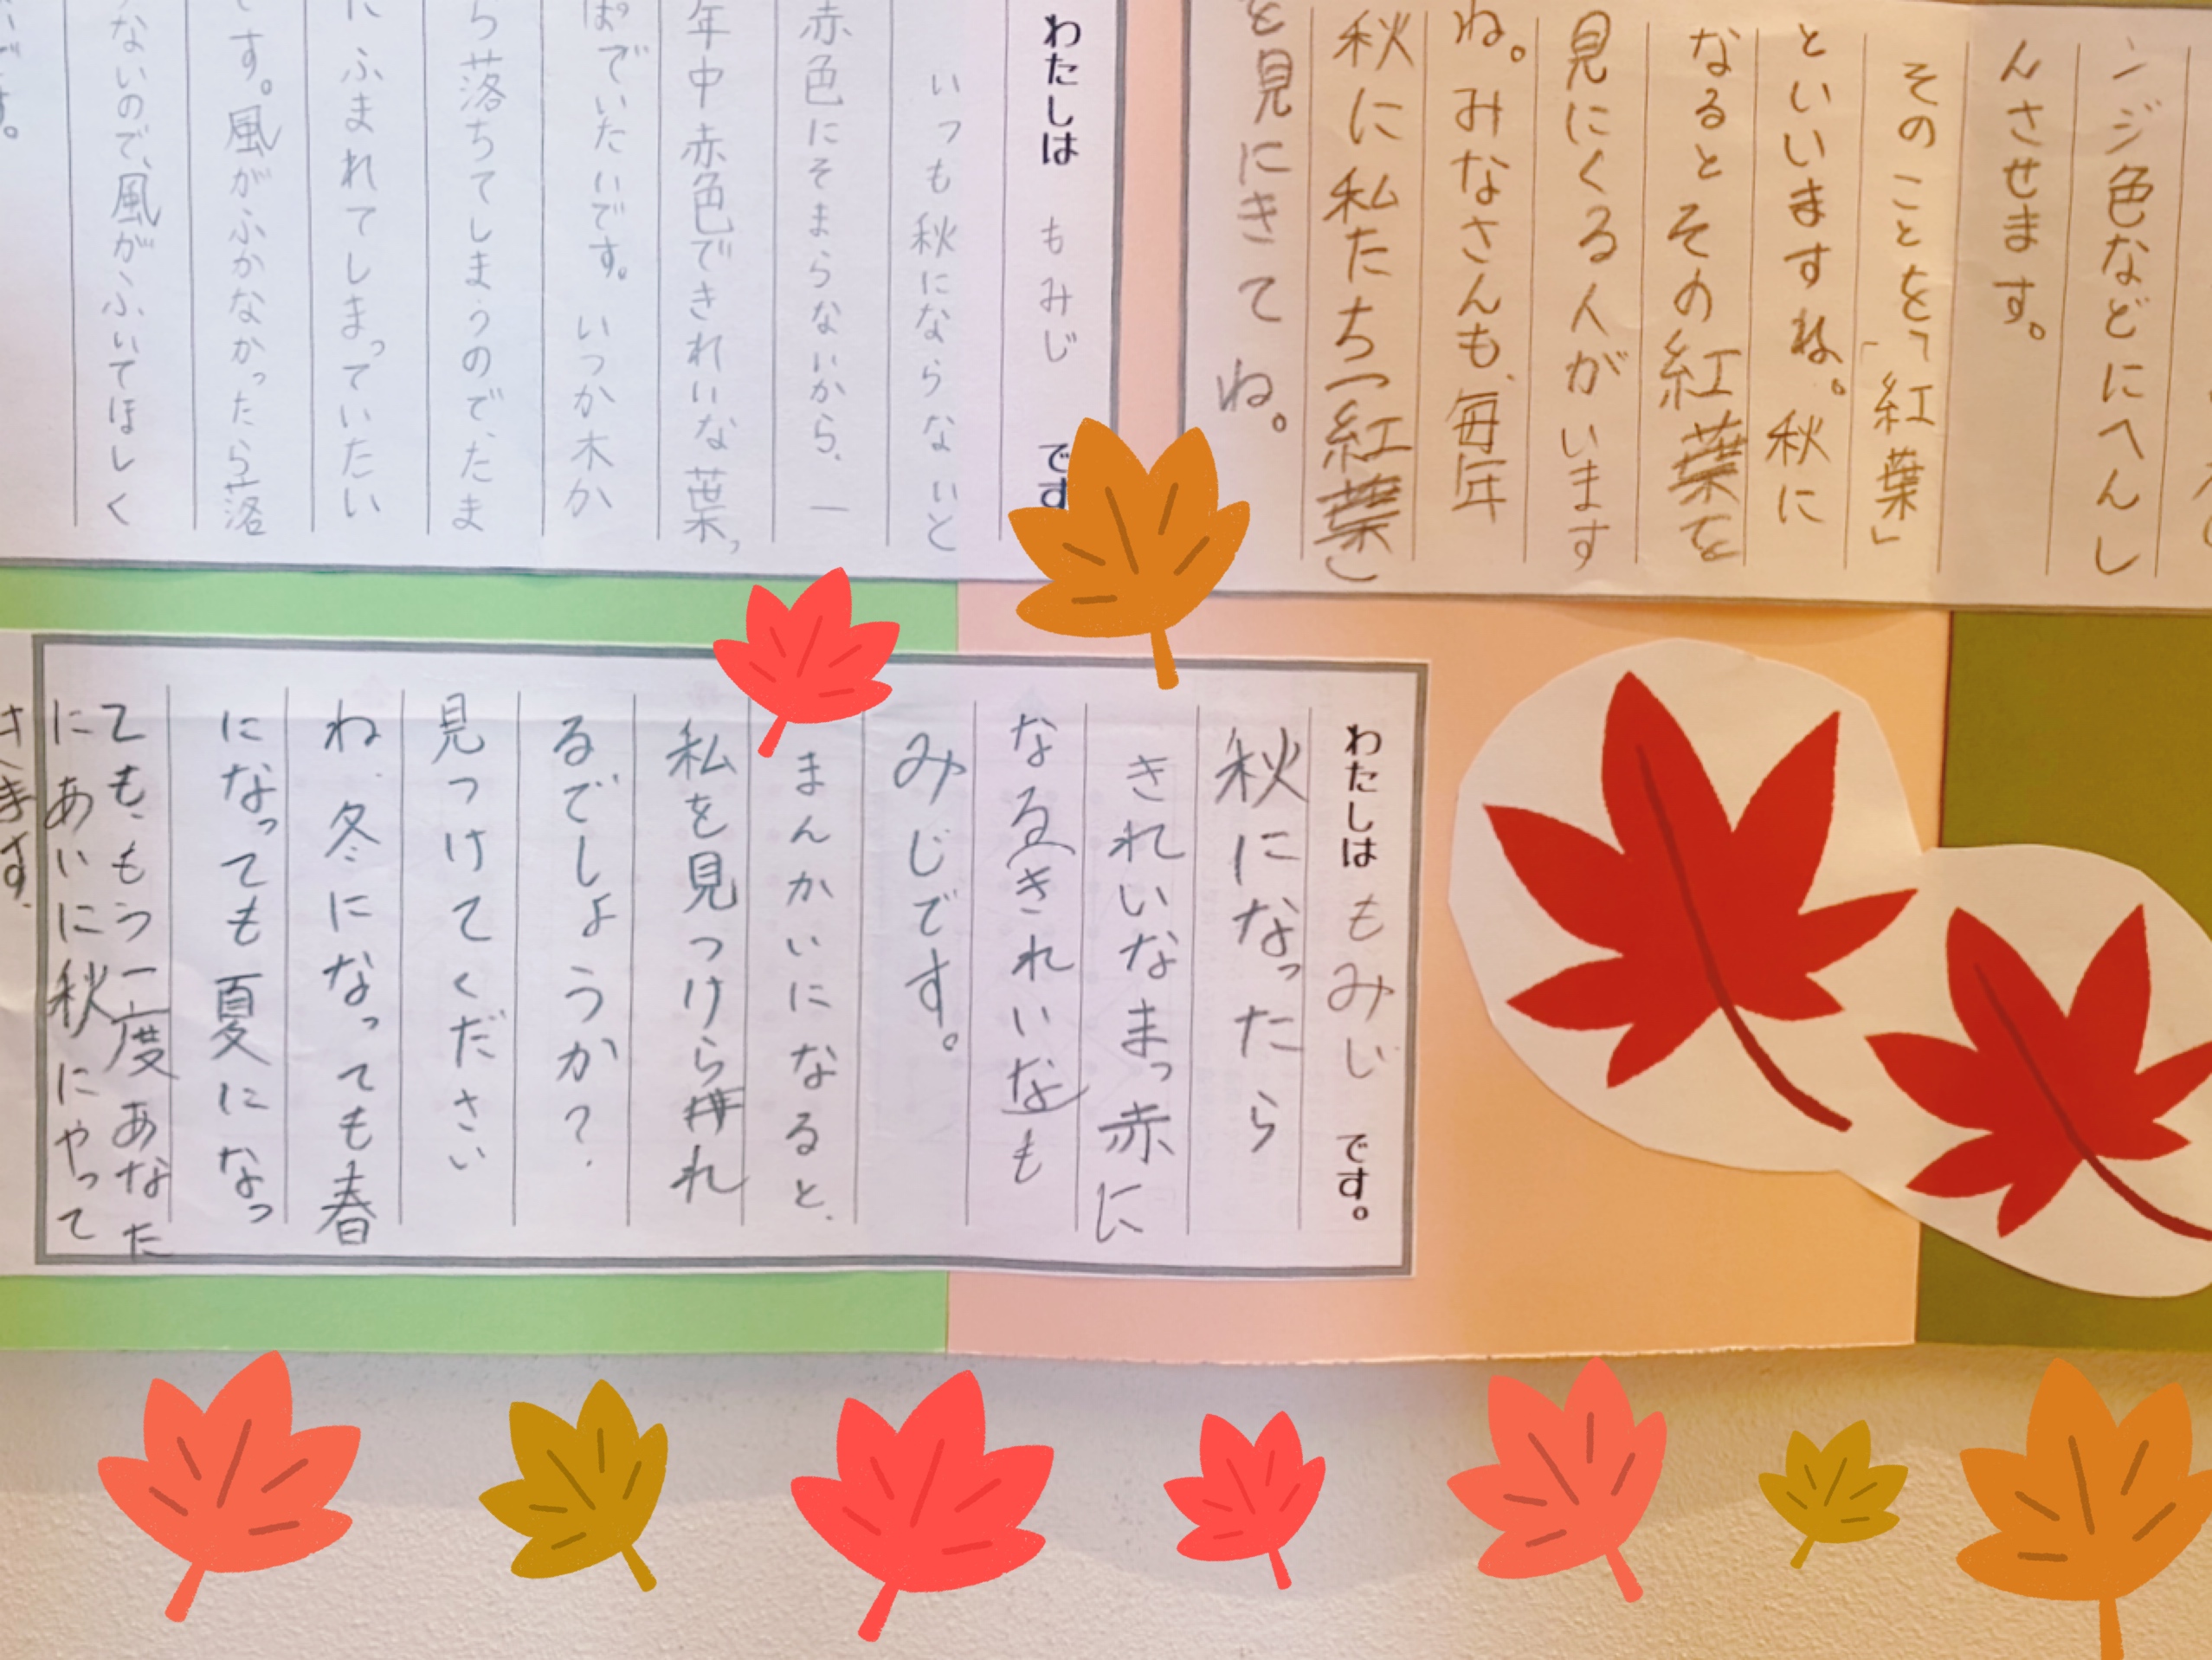 ンジ色などにへんし
んさせます。
そのことを「紅葉」
といいますね。秋に
なるとその紅葉を
見にくる人がいます
ね。みなさんも、毎年
秋に私たち「紅葉」
を見にきてね。
わたしは もみじ です
いつも秋にならないと
赤色にそまらないから、一
年中赤色できれいな葉っ
ぱでいたいです。いつか木か
ら落ちてしまうので、たま
にふまれてしまっていたい
です。風がふかなかったら落
ないので、風がふいてほしく
いです。
わたしは もみじ です。
秋になったら
きれいなまっ赤に
なるきれいなも
みじです。
まんかいになると、
私を見つけられ
るでしょうか?
見つけてください
ね、冬になっても春
になっても夏になっ
ても、もう一度あなた
にあいに秋にやって
きます。